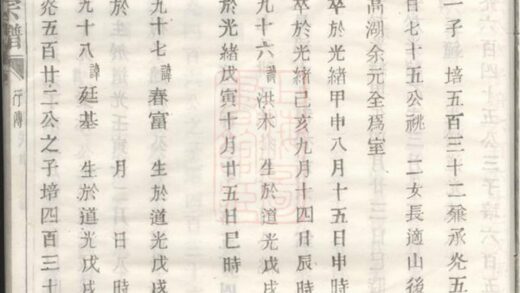 一子 培五百三十二兼承炎五
百七十五公祧 二女長適山後
高湖余元全爲室
卒於光緒甲申八月十五日申時
卒於光緒己亥九月十四日辰時
九十六 諱 洪木 生於道光戊戌
於光緒戊寅十月廿五日巳時
九十七 諱 春富 生於道光戊戌
於 生於道光壬寅 月二日
九十八 諱 廷基 生於道光戊戌
炎五百廿二公之子培四百三十
宗譜 行傳